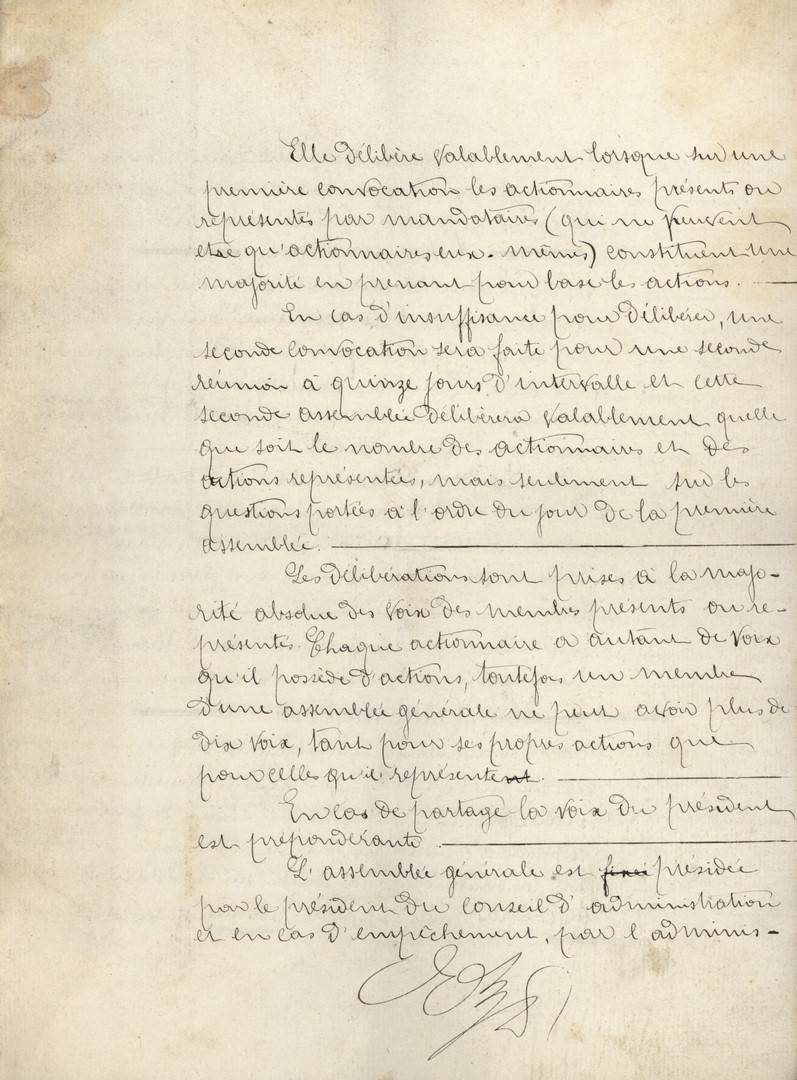 Elle délibère valablement lorsque sur une
première convocation les actionnaires présents ou
représentés par mandataires (qui ne peuvent
être qu'actionnaires eux-mêmes) constituent une
majorité en prenant pour base les actions.
En cas d'insuffisance pour délibérer, une
seconde convocation sera faite pour une seconde
réunion à quinze jours d'intervalle et cette
seconde assemblée délibérera valablement quelle
que soit le nombre des actionnaires et des
actions représentées, mais seulement sur les
questions portées à l'ordre du jour de la première
assemblée.
Les délibérations sont prises à la majo-
rité absolue des voix des membres présents ou re-
présentés. Chaque actionnaire a autant de voix
qu'il possède d'actions, toutefois un membre
d'une assemblée générale ne peut avoir plus de
dix voix, tant pour ses propres actions que
pour celles qu'il représente.
En cas de partage la voix du président
est prépondérante.
L'assemblée générale est présidée
par le président du conseil d'administration
et en cas d'empêchement, par l'adminis-